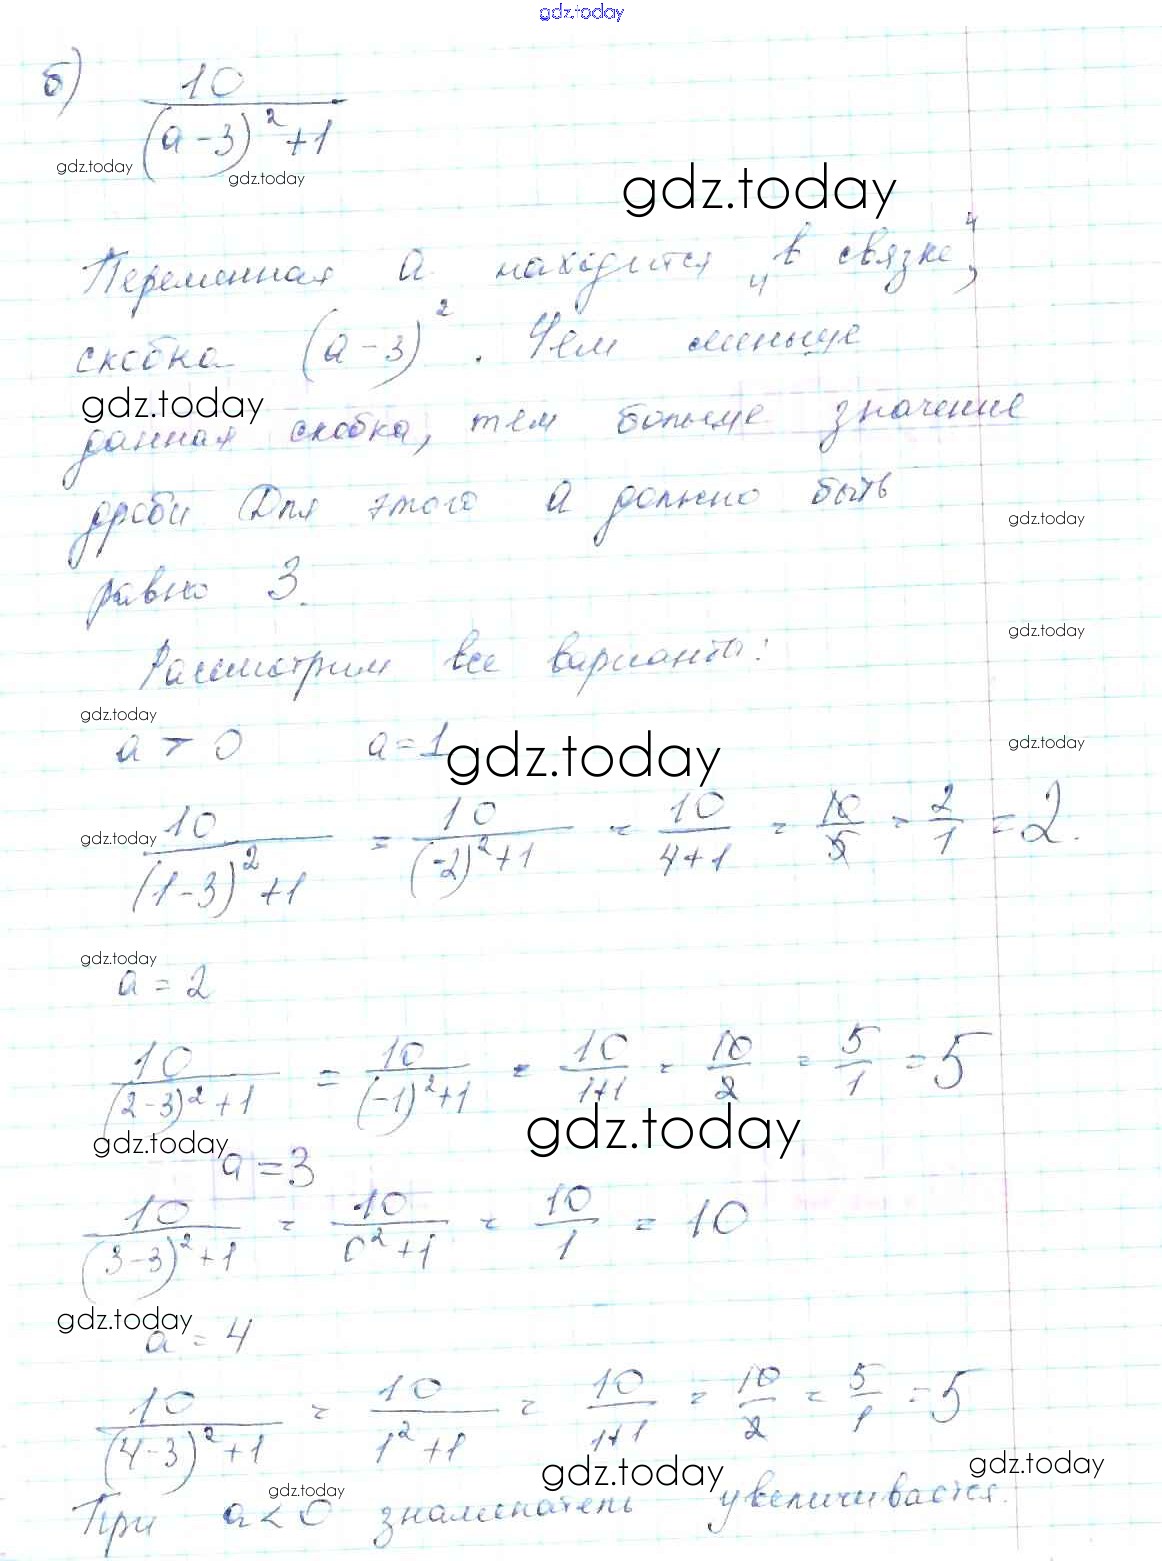 gdz.today
б) 10/((a-3)²+1)
gdz.today
gdz.today
gdz.today
Переменная a находится "в связке",
скобка (a-3)². Чем меньше
gdz.today
данная скобка, тем больше значение
дроби Для этого a должно быть
gdz.today
равно 3.
gdz.today
Рассмотрим все варианты:
gdz.today
a > 0 a = 1
gdz.today
gdz.today
gdz.today
10/((1-3)²+1) = 10/((-2)²+1) = 10/(4+1) = 10/5 = 2/1 = 2.
gdz.today
a = 2
10/((2-3)²+1) = 10/((-1)²+1) = 10/(1+1) = 10/2 = 5/1 = 5
gdz.today
gdz.today
a = 3
10/((3-3)²+1) = 10/(0²+1) = 10/1 = 10
gdz.today
a = 4
10/((4-3)²+1) = 10/(1²+1) = 10/(1+1) = 10/2 = 5/1 = 5
gdz.today
gdz.today
gdz.today
При a < 0 знаменатель увеличивается.